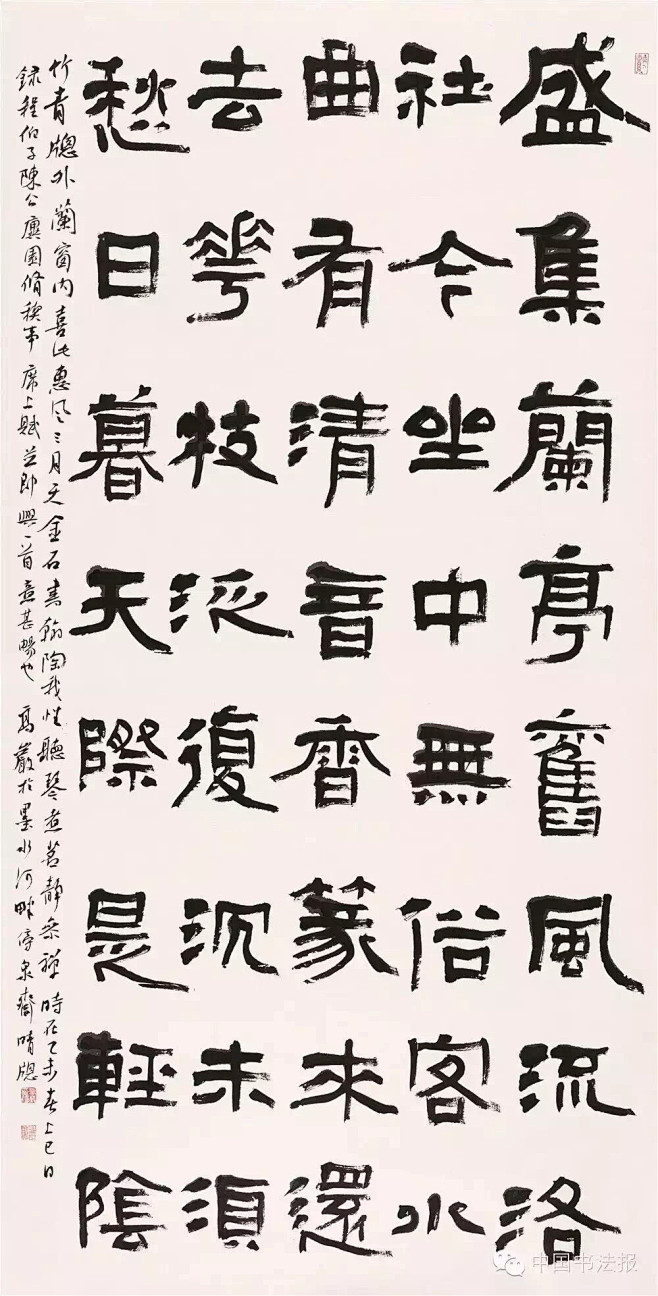 盛集蘭亭舊風流洛
社今坐中無俗客水
曲有清音香篆來還
去華枝泛復沉未須
愁日暮天際是輕陰
竹青牕外蘭窗内喜此惠風三月天金石書翰陶我性聽琴煮茗靜參禪時在乙未春上巳日
録程伯子陳公廙園脩稧事席上賦並即興一首意甚暢也高嚴於墨水河畔停泉齋晴牕
中国书法报